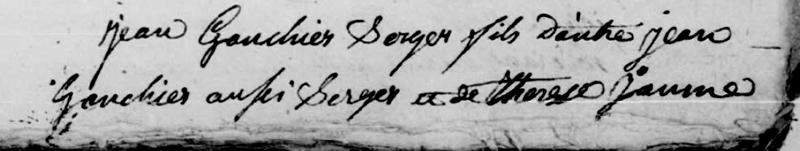 jean Gauchier Serger fils d'autre jean
Gauchier aussi Serger et de Therese jaume